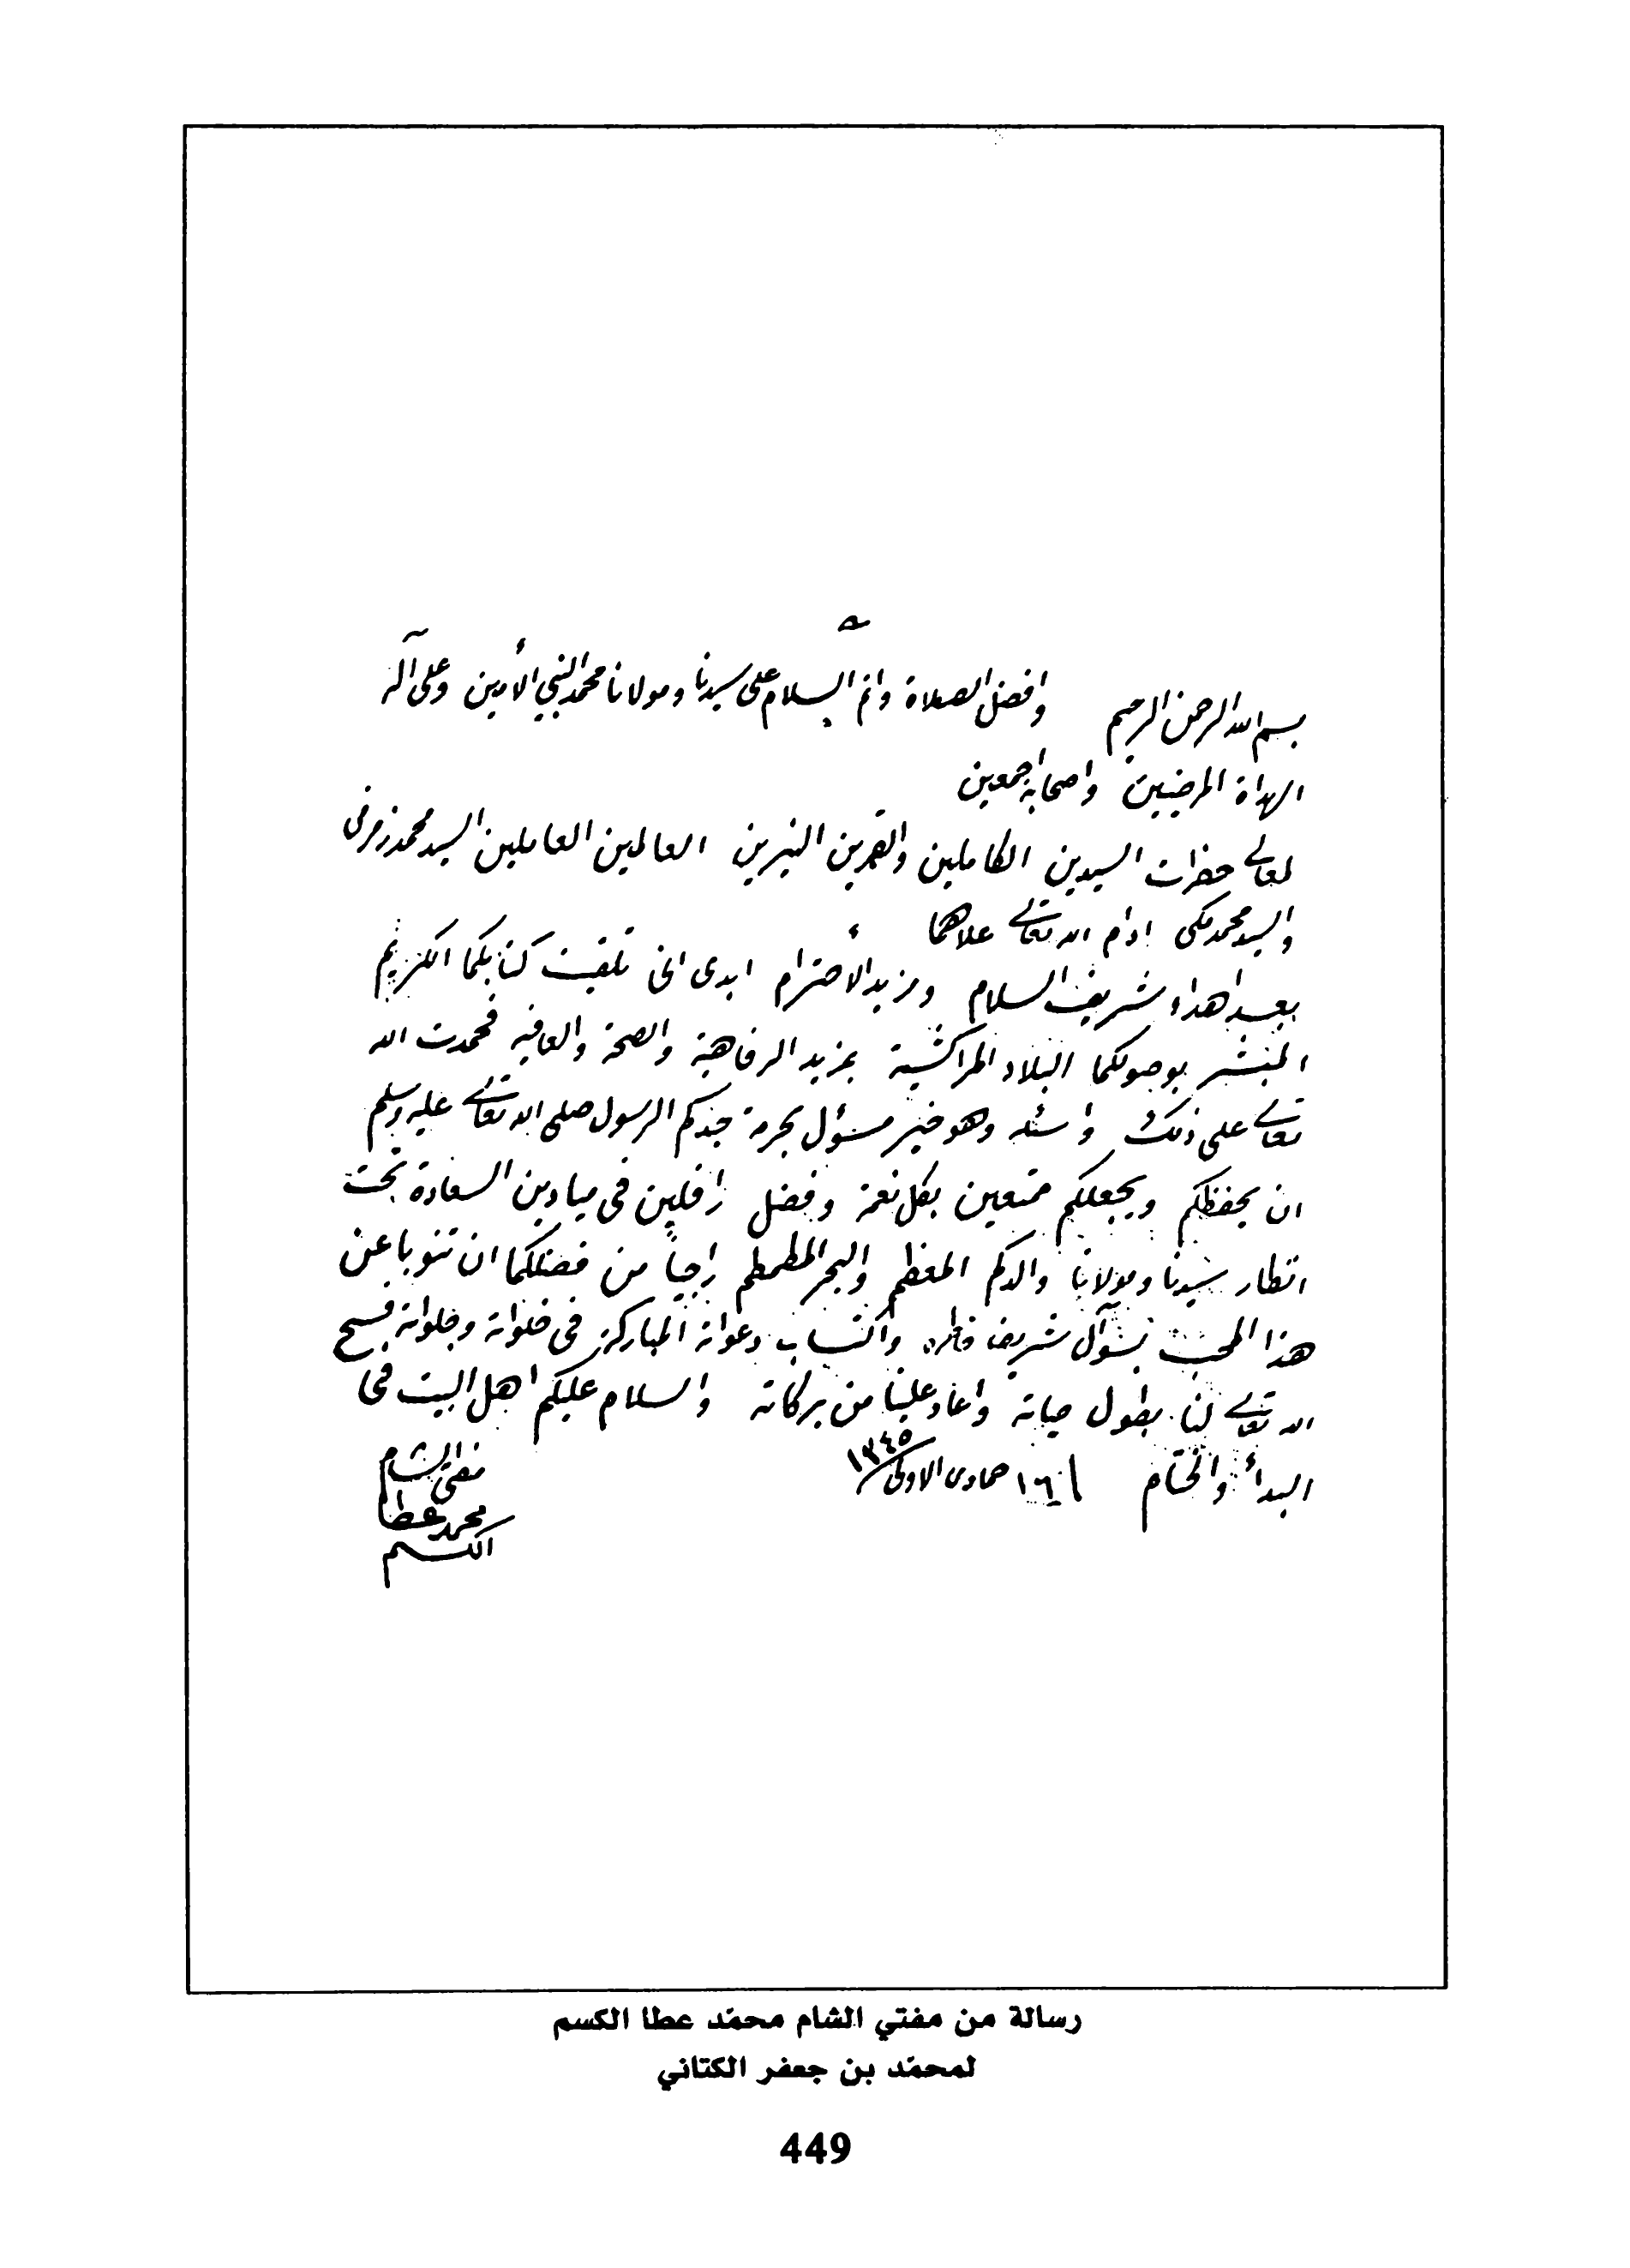 بسم الله الرحمن الرحيم وافضل الصلاة واتم السلام على سيدنا ومولانا محمد النبي الأمين وعلى آله
الهداة المرضيين واصحابه اجمعين
لمعالي حضرات السيدين الكاملين والقمرين النيرين العالمين العاملين السيد محمد زمزمى
والسيد محمد مكى ادام الله تعالى علاهما
بعد اهداء شريف السلام ومزيد الأحترام ابدى انى تلقيت كتابكما الكريم
المبشر بوصولكما البلاد المراكشية بمزيد الرفاهية والصحة والعافيه فحمدت الله
تعالى على ذلك واسئله وهو خير مسؤل بحرمة جدكم الرسول صلى الله تعالى عليه وسلم
ان يحفظكم ويجعلكم ممتعين بكل نعمة وفضل رافلين فى ميادين السعادة تحت
انظار سيدنا ومولانا والدكم المعظم والبحر المطمطم راجياً من فضلكما ان تنوبا عن
هذا المحب بسؤآل شريف خاطره واكتساب دعواته المباركة فى خلواته وجلواته فسح
الله تعالى لنا بطول حياته واعاد علينا من بركاته والسلام عليكم اهل البيت فى
البدأ والختام ١٦ جمادى الاولى ١٣٤٥
مفتى الشام
محمد عطا
الكسم
رسالة من مفتي الشام محمّد عطا الكسم
لمحمّد بن جعفر الكتاني
449